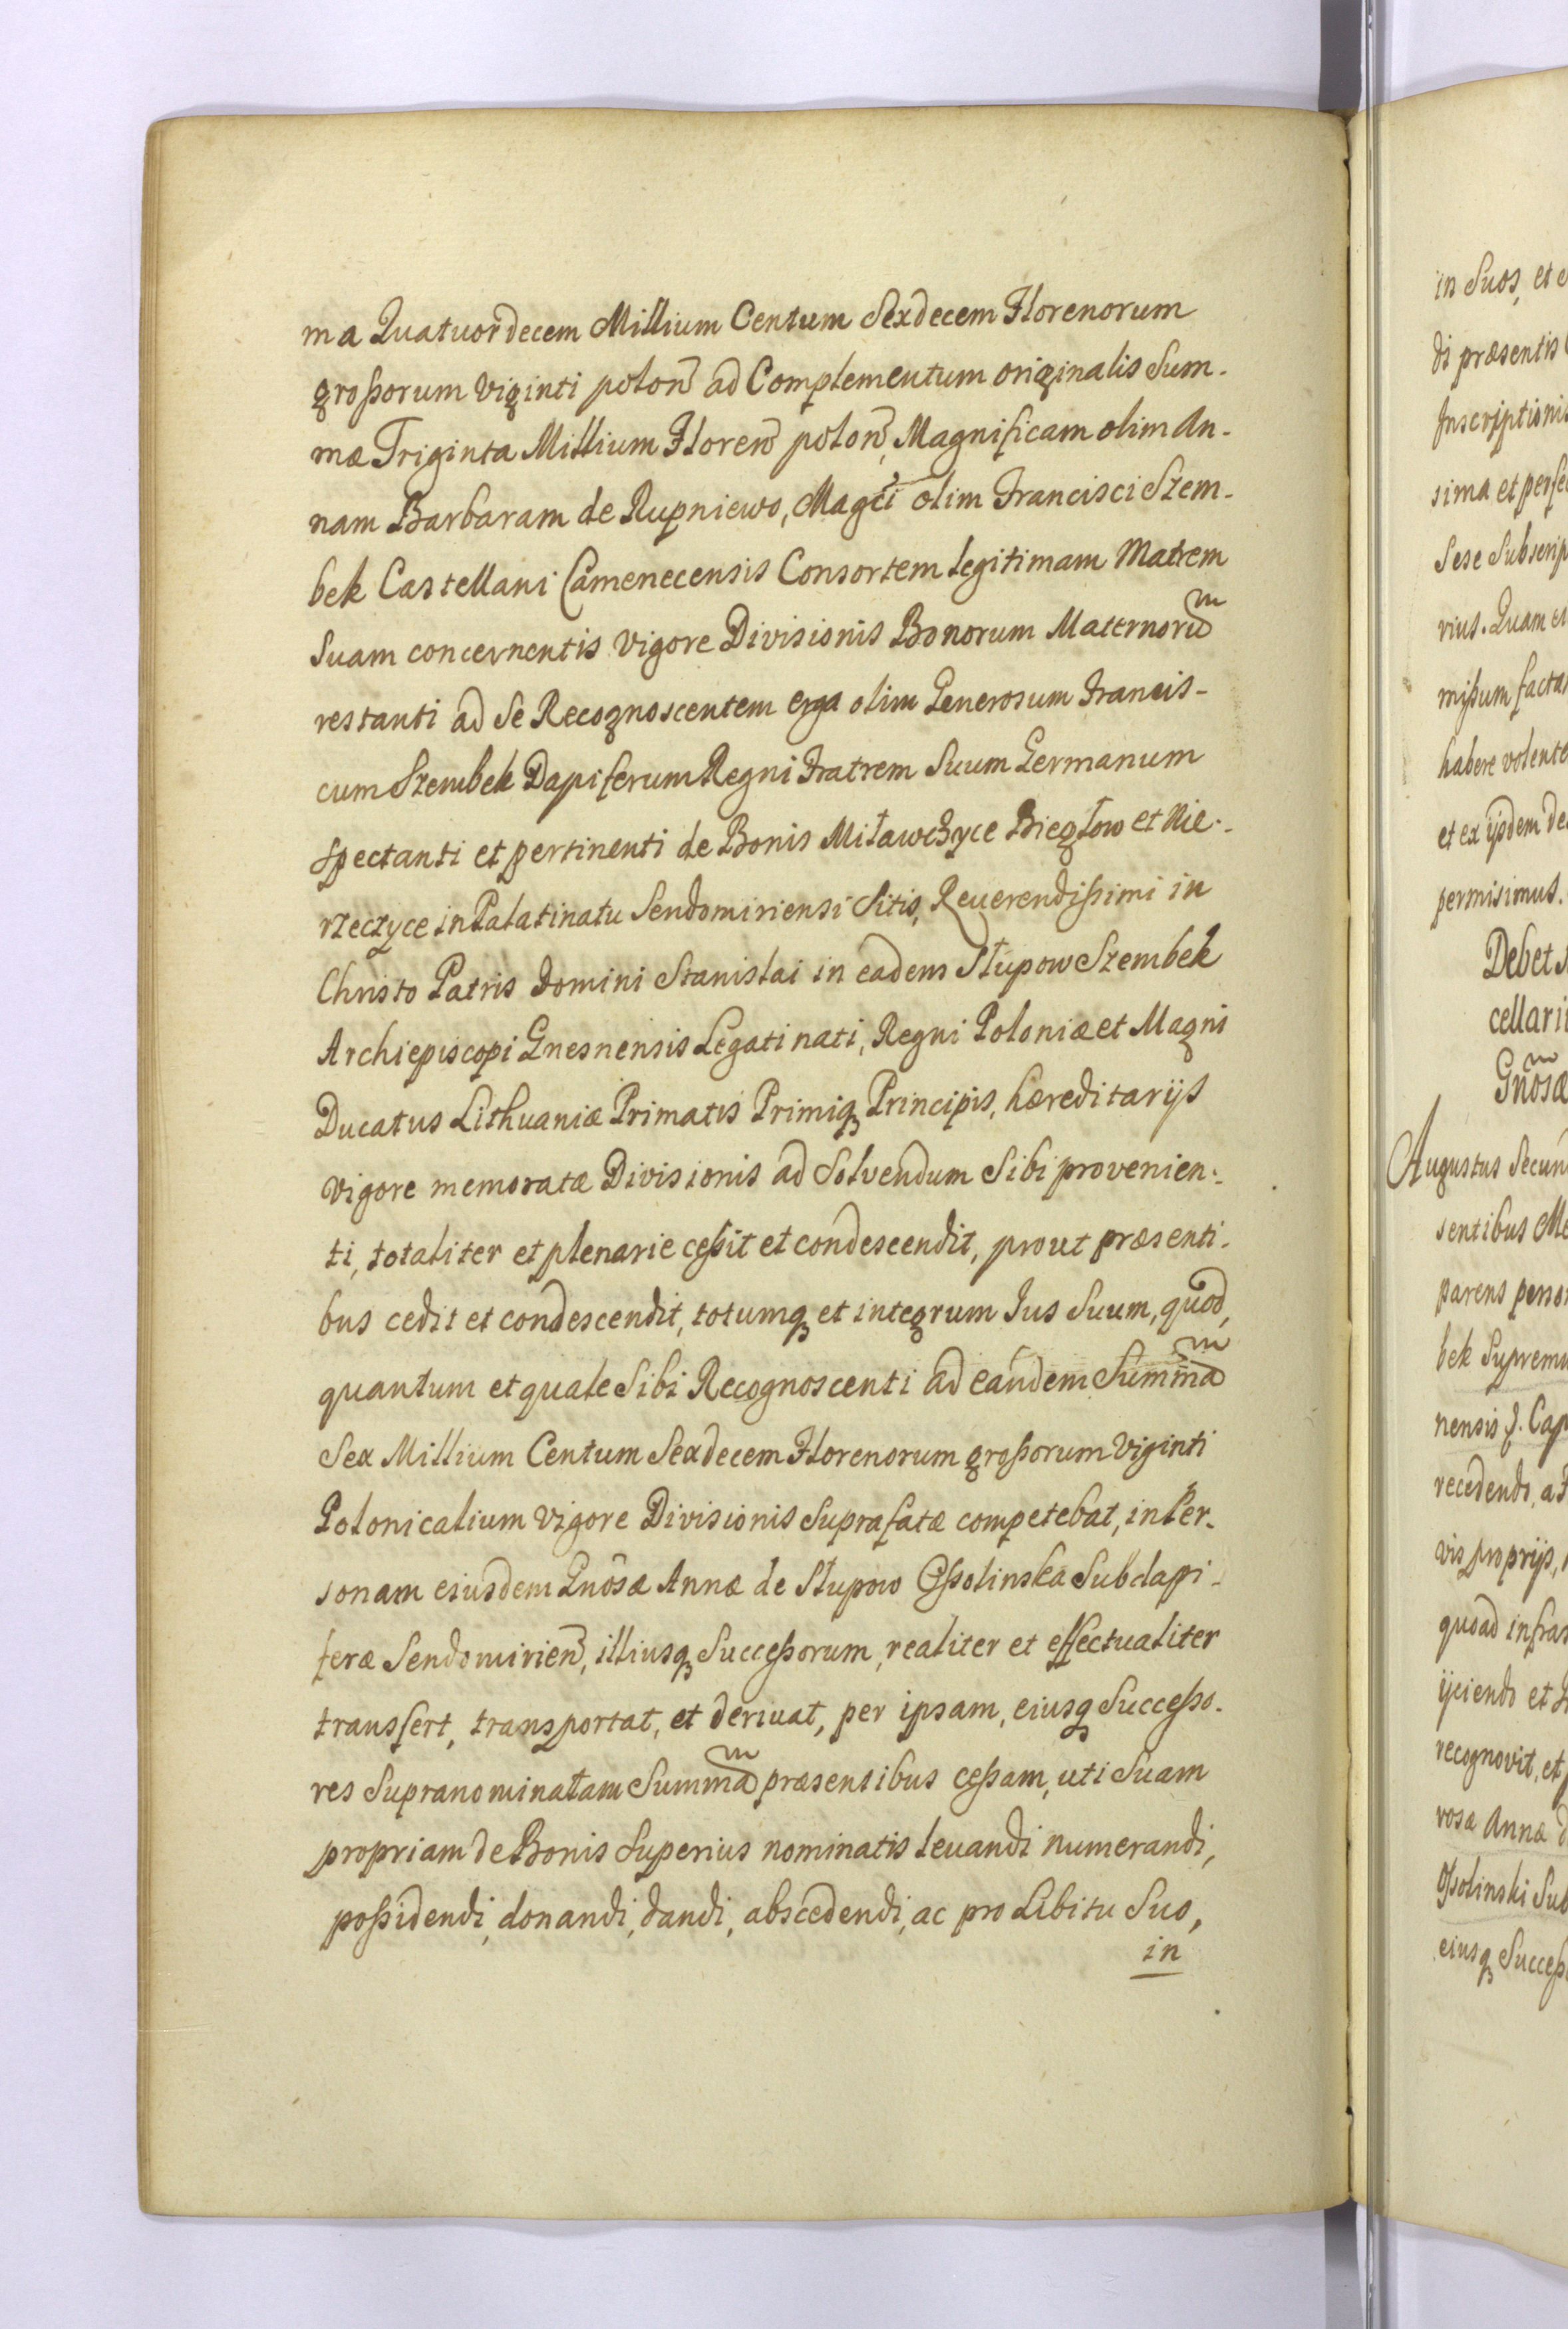 ma Quatuordecem Millium Centum Sexdecem Florenorum
großorum viginti polon̄ ad Complementum originalis Sum-
mæ Triginta Millium Floren̄ polon̄, Magnificam olim An-
nam Barbaram de Rupniewo, Magci olim Francisci Szem-
bek Castellani Camenecensis Consortem legitimam Matrem
Suam concernentis vigore Divisionis Bonorum Maternorum
restanti ad se Recognoscentem erga olim Generosum Francis-
cum Szembek Dapiferum Regni Fratrem Suum Germanum
spectanti et pertinenti de Bonis Miławczyce Biegłow et Nie-
rzeczyce in Palatinatu Sendomiriensi Sitis, Reuerendißimi in
Christo Patris Domini Stanislai in eadem Słupow Szembek
Archiepiscopi Gnesnensis Legati nati, Regni Poloniæ et Magni
Ducatus Lithuaniæ Primatis Primiq3 Principis, hæreditarijs
vigore memoratæ Divisionis ad Solvendum Sibi provenien-
ti, totaliter et plenarie ceßit et condescendit, prout præsenti-
bus cedit et condescendit, totumq3 et integrum Jus Suum, quod,
quantum et quale Sibi Recognoscenti ad eandem Summam
Sex Millium Centum Sexdecem Florenorum großorum Viginti
Polonicalium vigore Divisionis Suprafatæ competebat, in Per-
sonam eiusdem Gnōsæ Annæ de Słupow Oßolinska Subdapi-
feræ Sendomirien̄, illiusq3 Succeßorum, realiter et effectualiter
transfert, transportat, et deriuat, per ipsam, eiusq3 Succeßo-
res Supranominatam Summam præsentibus ceßam, uti Suam
propriam de Bonis Superius nominatis leuandi numerandi,
poßidendi, donandi, dandi, abscedendi, ac pro Libitu Suo,
in
in Suos, et
di præsentis
Inscriptionis
sima et perfe
Sese Subscrip
rius. Quam et
mißum facta
habere volente
et ex ijsdem de
permisimus.
Debet
cellarii
Gnōsæ
Augustus Secun
sentibus Me
parens perso
bek Supremu
nensis J. Cap
recedendo, a F
vis proprijs,
quoad infras
ijciendo et
recognovit, et
rosæ Annæ d
Oßolinski Sub
eiusq3 Succeß